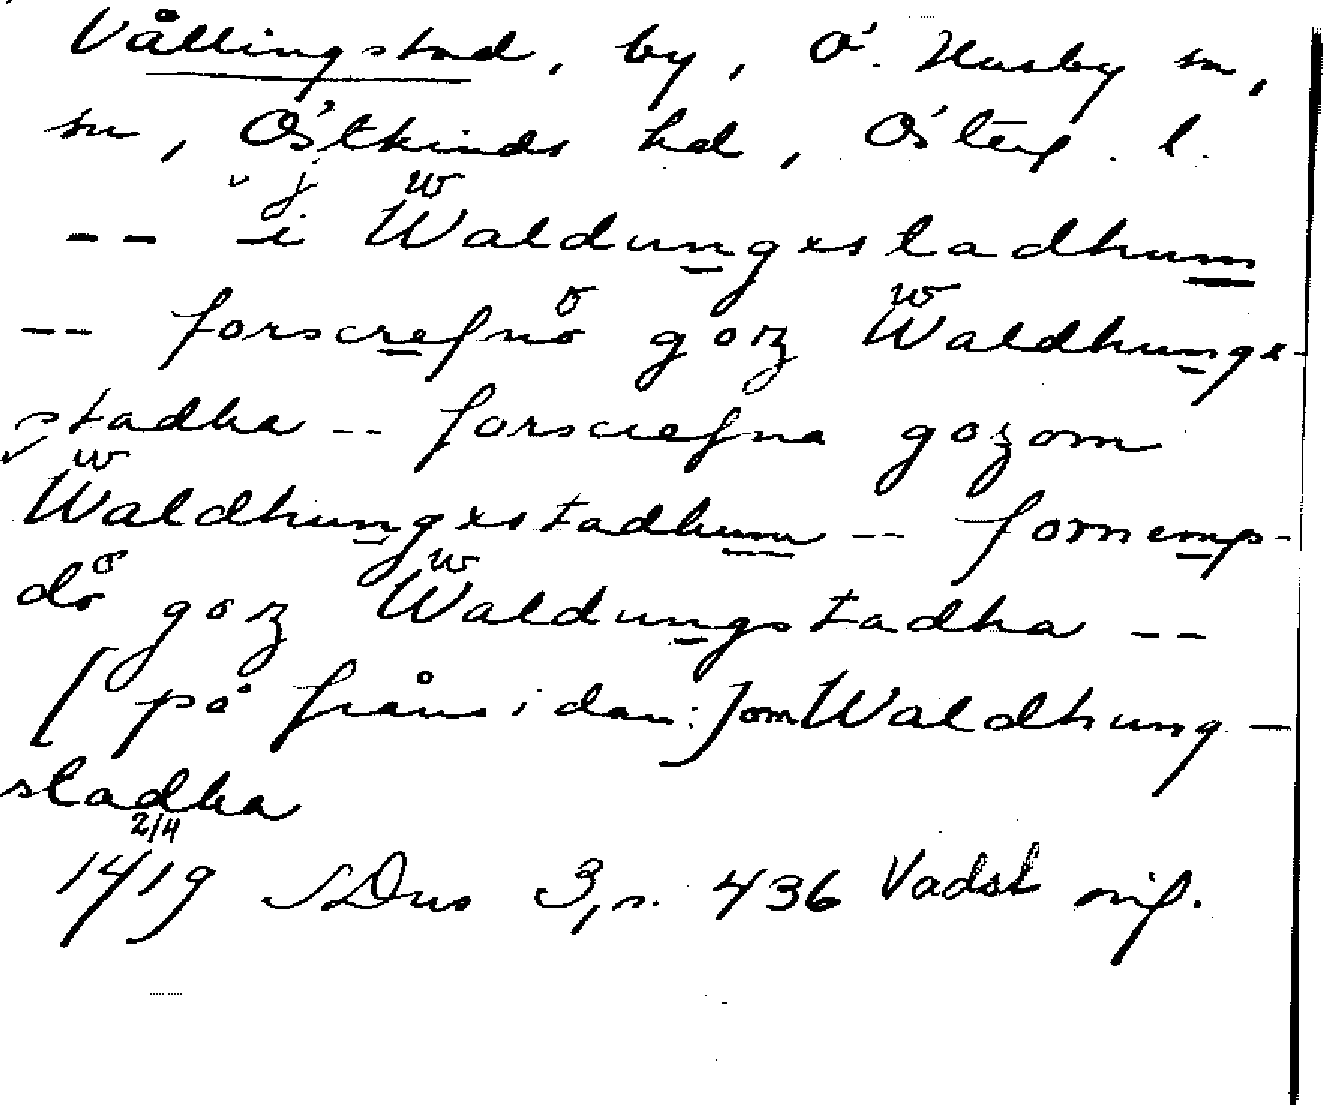 Vållingstad, by, Ö. Husby sn,
sn, Östkinds hd, Österg. l.
-- i Waldungxstadhum
-- forscrefnø goz Waldhungx-
stadha -- forscrefna gozom
Waldhungxstadhum -- fornemp-
dø goz Waldungstadha --
[på frånsidan:] om Waldhung-
stadha
14 2/4 19 SDns 3, s. 436 Vadst orig.